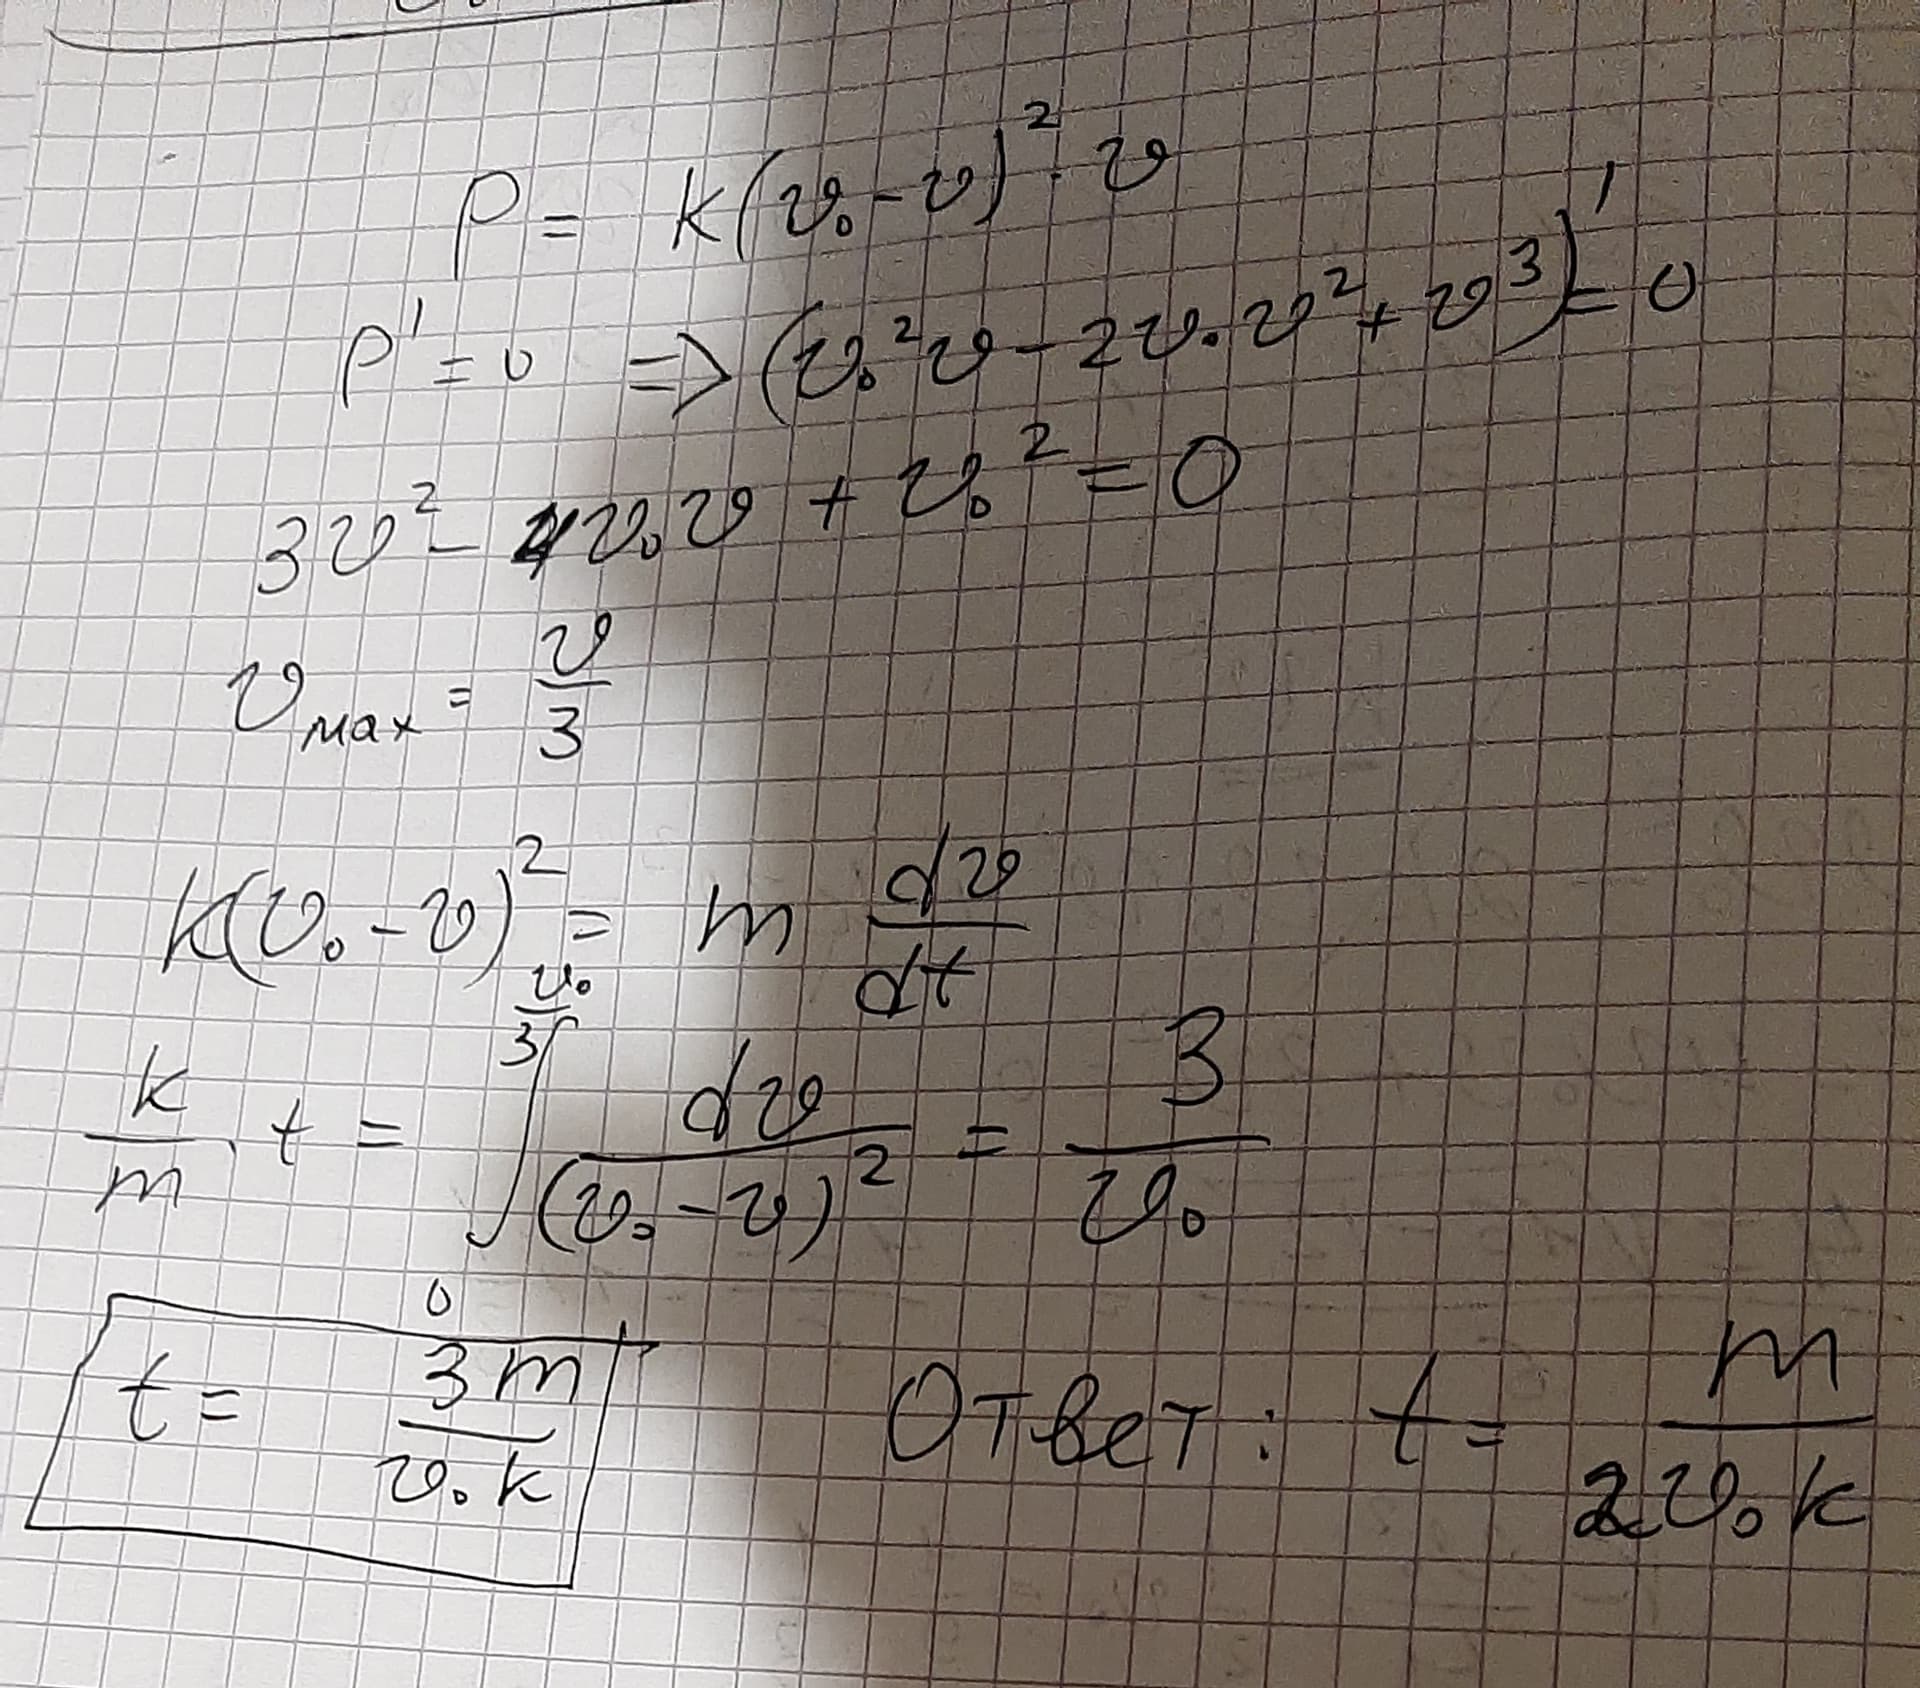 P = k(v₀ - v)² · v
P' = 0 => (v₀²v - 2v₀v² + v³)' = 0
3v² - 4v₀v + v₀² = 0
v_max = v/3
k(v₀ - v)² = m dv/dt
k/m · t = ∫₀^(v₀/3) dv/(v₀ - v)² = 3/v₀
t = 3m/(v₀k) Ответ: t = m/(2v₀k)